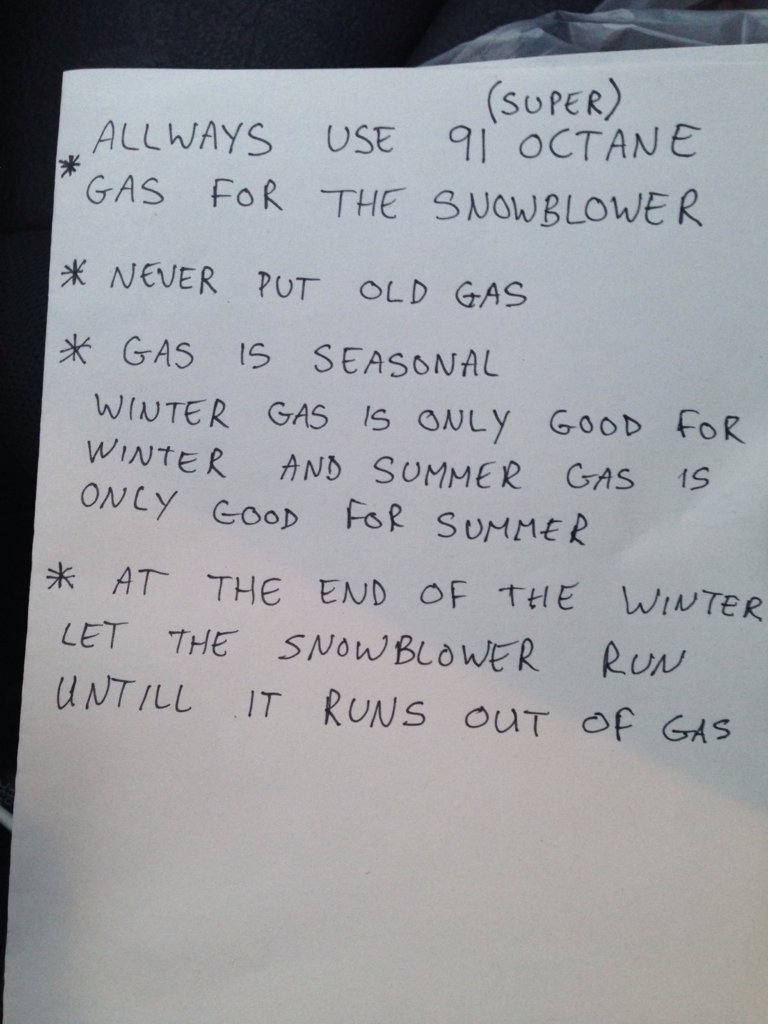 (SUPER)
* ALLWAYS USE 91 OCTANE
GAS FOR THE SNOWBLOWER
* NEVER PUT OLD GAS
* GAS IS SEASONAL
WINTER GAS IS ONLY GOOD FOR
WINTER AND SUMMER GAS IS
ONLY GOOD FOR SUMMER
* AT THE END OF THE WINTER
LET THE SNOWBLOWER RUN
UNTILL IT RUNS OUT OF GAS